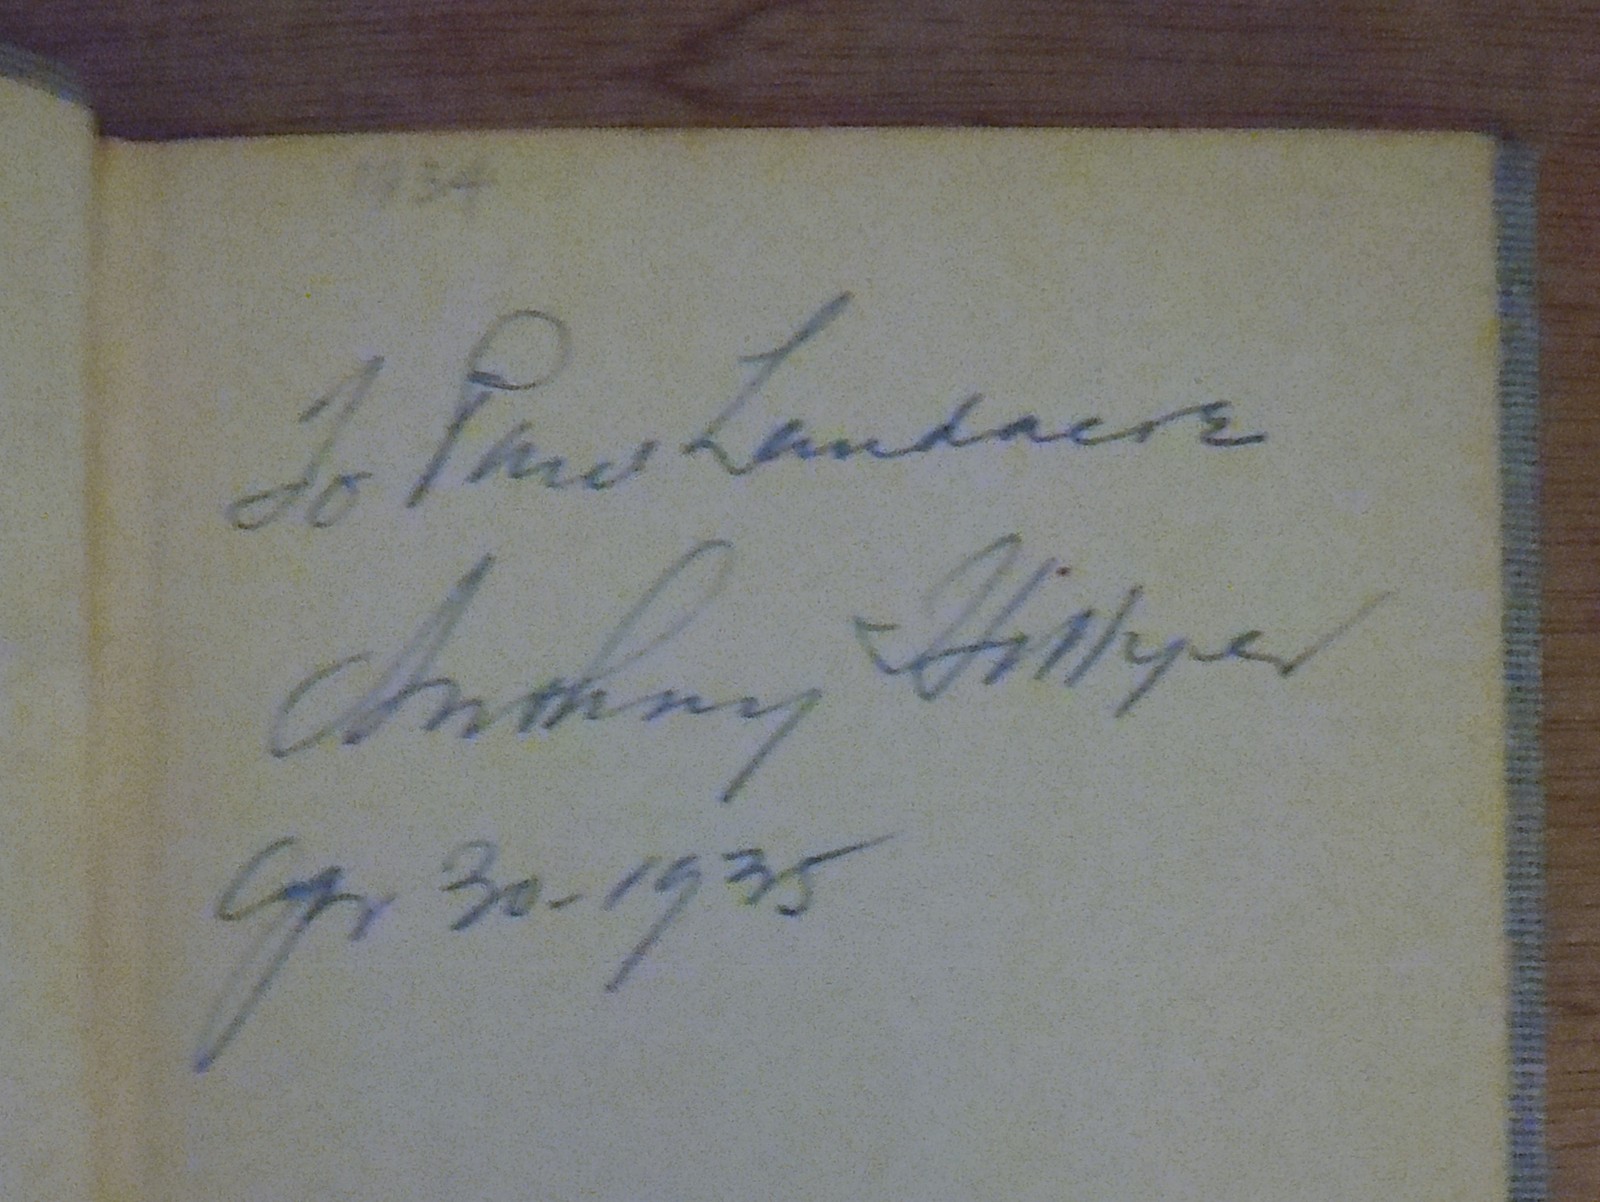 1934
To Paul Landacre
Anthony Hillyer
Apr 30-1935